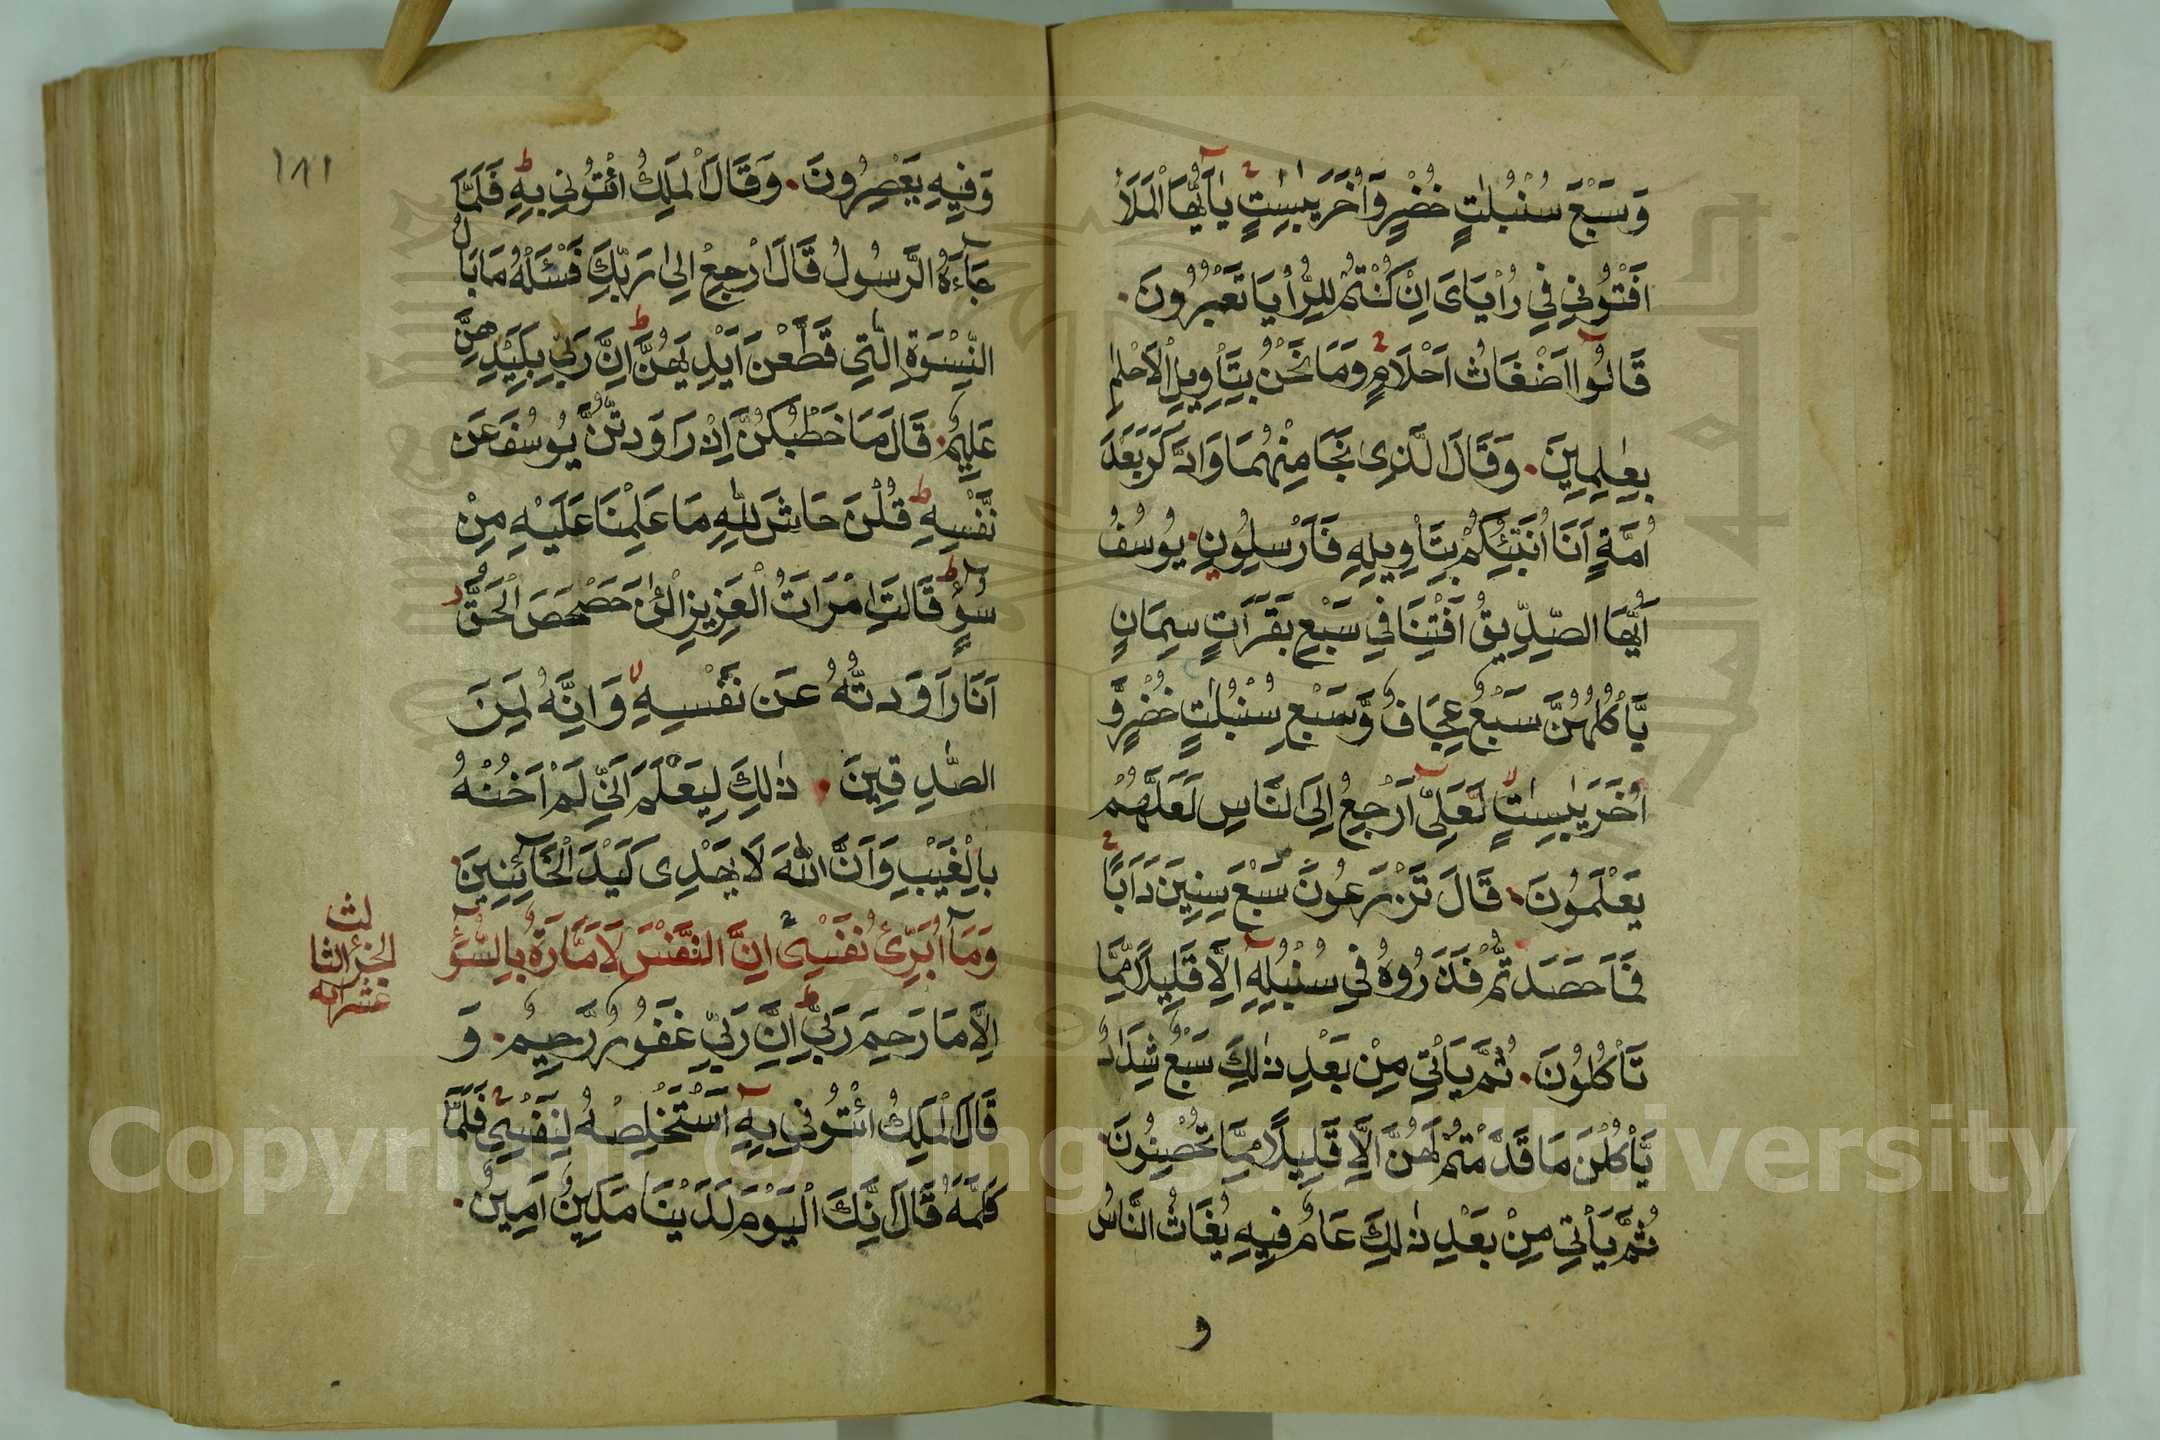 وَسَبْعَ سُنْبُلٰتٍ خُضْرٍ وَّاُخَرَ يٰبِسٰتٍ يٰٓاَيُّهَا الْمَلَاُ
اَفْتُونِي فِي رُءْيَايَ اِنْ كُنْتُمْ لِلرُّءْيَا تَعْبُرُونَ
قَالُوٓا اَضْغَاثُ اَحْلَامٍ وَمَا نَحْنُ بِتَأْوِيلِ الْاَحْلٰمِ
بِعٰلِمِينَ وَقَالَ الَّذِي نَجَا مِنْهُمَا وَادَّكَرَ بَعْدَ
اُمَّةٍ اَنَا اُنَبِّئُكُمْ بِتَأْوِيلِهِ فَاَرْسِلُونِ يُوسُفُ
اَيُّهَا الصِّدِّيقُ اَفْتِنَا فِي سَبْعِ بَقَرَاتٍ سِمَانٍ
يَّأْكُلُهُنَّ سَبْعٌ عِجَافٌ وَّسَبْعِ سُنْبُلٰتٍ خُضْرٍ وَّ
اُخَرَ يٰبِسٰتٍ لَّعَلِّيٓ اَرْجِعُ اِلَى النَّاسِ لَعَلَّهُمْ
يَعْلَمُونَ قَالَ تَزْرَعُونَ سَبْعَ سِنِينَ دَاَبًا
فَمَا حَصَدْتُّمْ فَذَرُوهُ فِي سُنْبُلِهِٓ اِلَّا قَلِيلًا مِمَّا
تَأْكُلُونَ ثُمَّ يَأْتِي مِنْ بَعْدِ ذٰلِكَ سَبْعٌ شِدَادٌ
يَّأْكُلْنَ مَا قَدَّمْتُمْ لَهُنَّ اِلَّا قَلِيلًا مِمَّا تُحْصِنُونَ
ثُمَّ يَأْتِي مِنْ بَعْدِ ذٰلِكَ عَامٌ فِيهِ يُغَاثُ النَّاسُ
و
١٨١
وَفِيهِ يَعْصِرُونَ وَقَالَ الْمَلِكُ ائْتُونِي بِهِ فَلَمَّا
جَآءَهُ الرَّسُولُ قَالَ ارْجِعْ اِلٰى رَبِّكَ فَسْئَلْهُ مَا بَالُ
النِّسْوَةِ الّٰتِي قَطَّعْنَ اَيْدِيَهُنَّ اِنَّ رَبِّي بِكَيْدِهِنَّ
عَلِيمٌ قَالَ مَا خَطْبُكُنَّ اِذْ رَاوَدْتُّنَّ يُوسُفَ عَنْ
نَّفْسِهِ قُلْنَ حَاشَ لِلّٰهِ مَا عَلِمْنَا عَلَيْهِ مِنْ
سُوٓءٍ قَالَتِ امْرَاَتُ الْعَزِيزِ الْـٰٔنَ حَصْحَصَ الْحَقُّ
اَنَا رَاوَدتُّهُ عَن نَّفْسِهِ وَاِنَّهُ لَمِنَ
الصّٰدِقِينَ ذٰلِكَ لِيَعْلَمَ اَنِّي لَمْ اَخُنْهُ
بِالْغَيْبِ وَاَنَّ اللّٰهَ لَا يَهْدِي كَيْدَ الْخَآئِنِينَ
وَمَآ اُبَرِّئُ نَفْسِي اِنَّ النَّفْسَ لَاَمَّارَةٌ بِالسُّوٓءِ
الجزء الثالث
عشر
اِلَّا مَا رَحِمَ رَبِّي اِنَّ رَبِّي غَفُورٌ رَّحِيمٌ وَ
قَالَ الْمَلِكُ ائْتُونِي بِهِٓ اَسْتَخْلِصْهُ لِنَفْسِي فَلَمَّا
كَلَّمَهُ قَالَ اِنَّكَ الْيَوْمَ لَدَيْنَا مَكِينٌ اَمِينٌ
Copyright © King Saud University